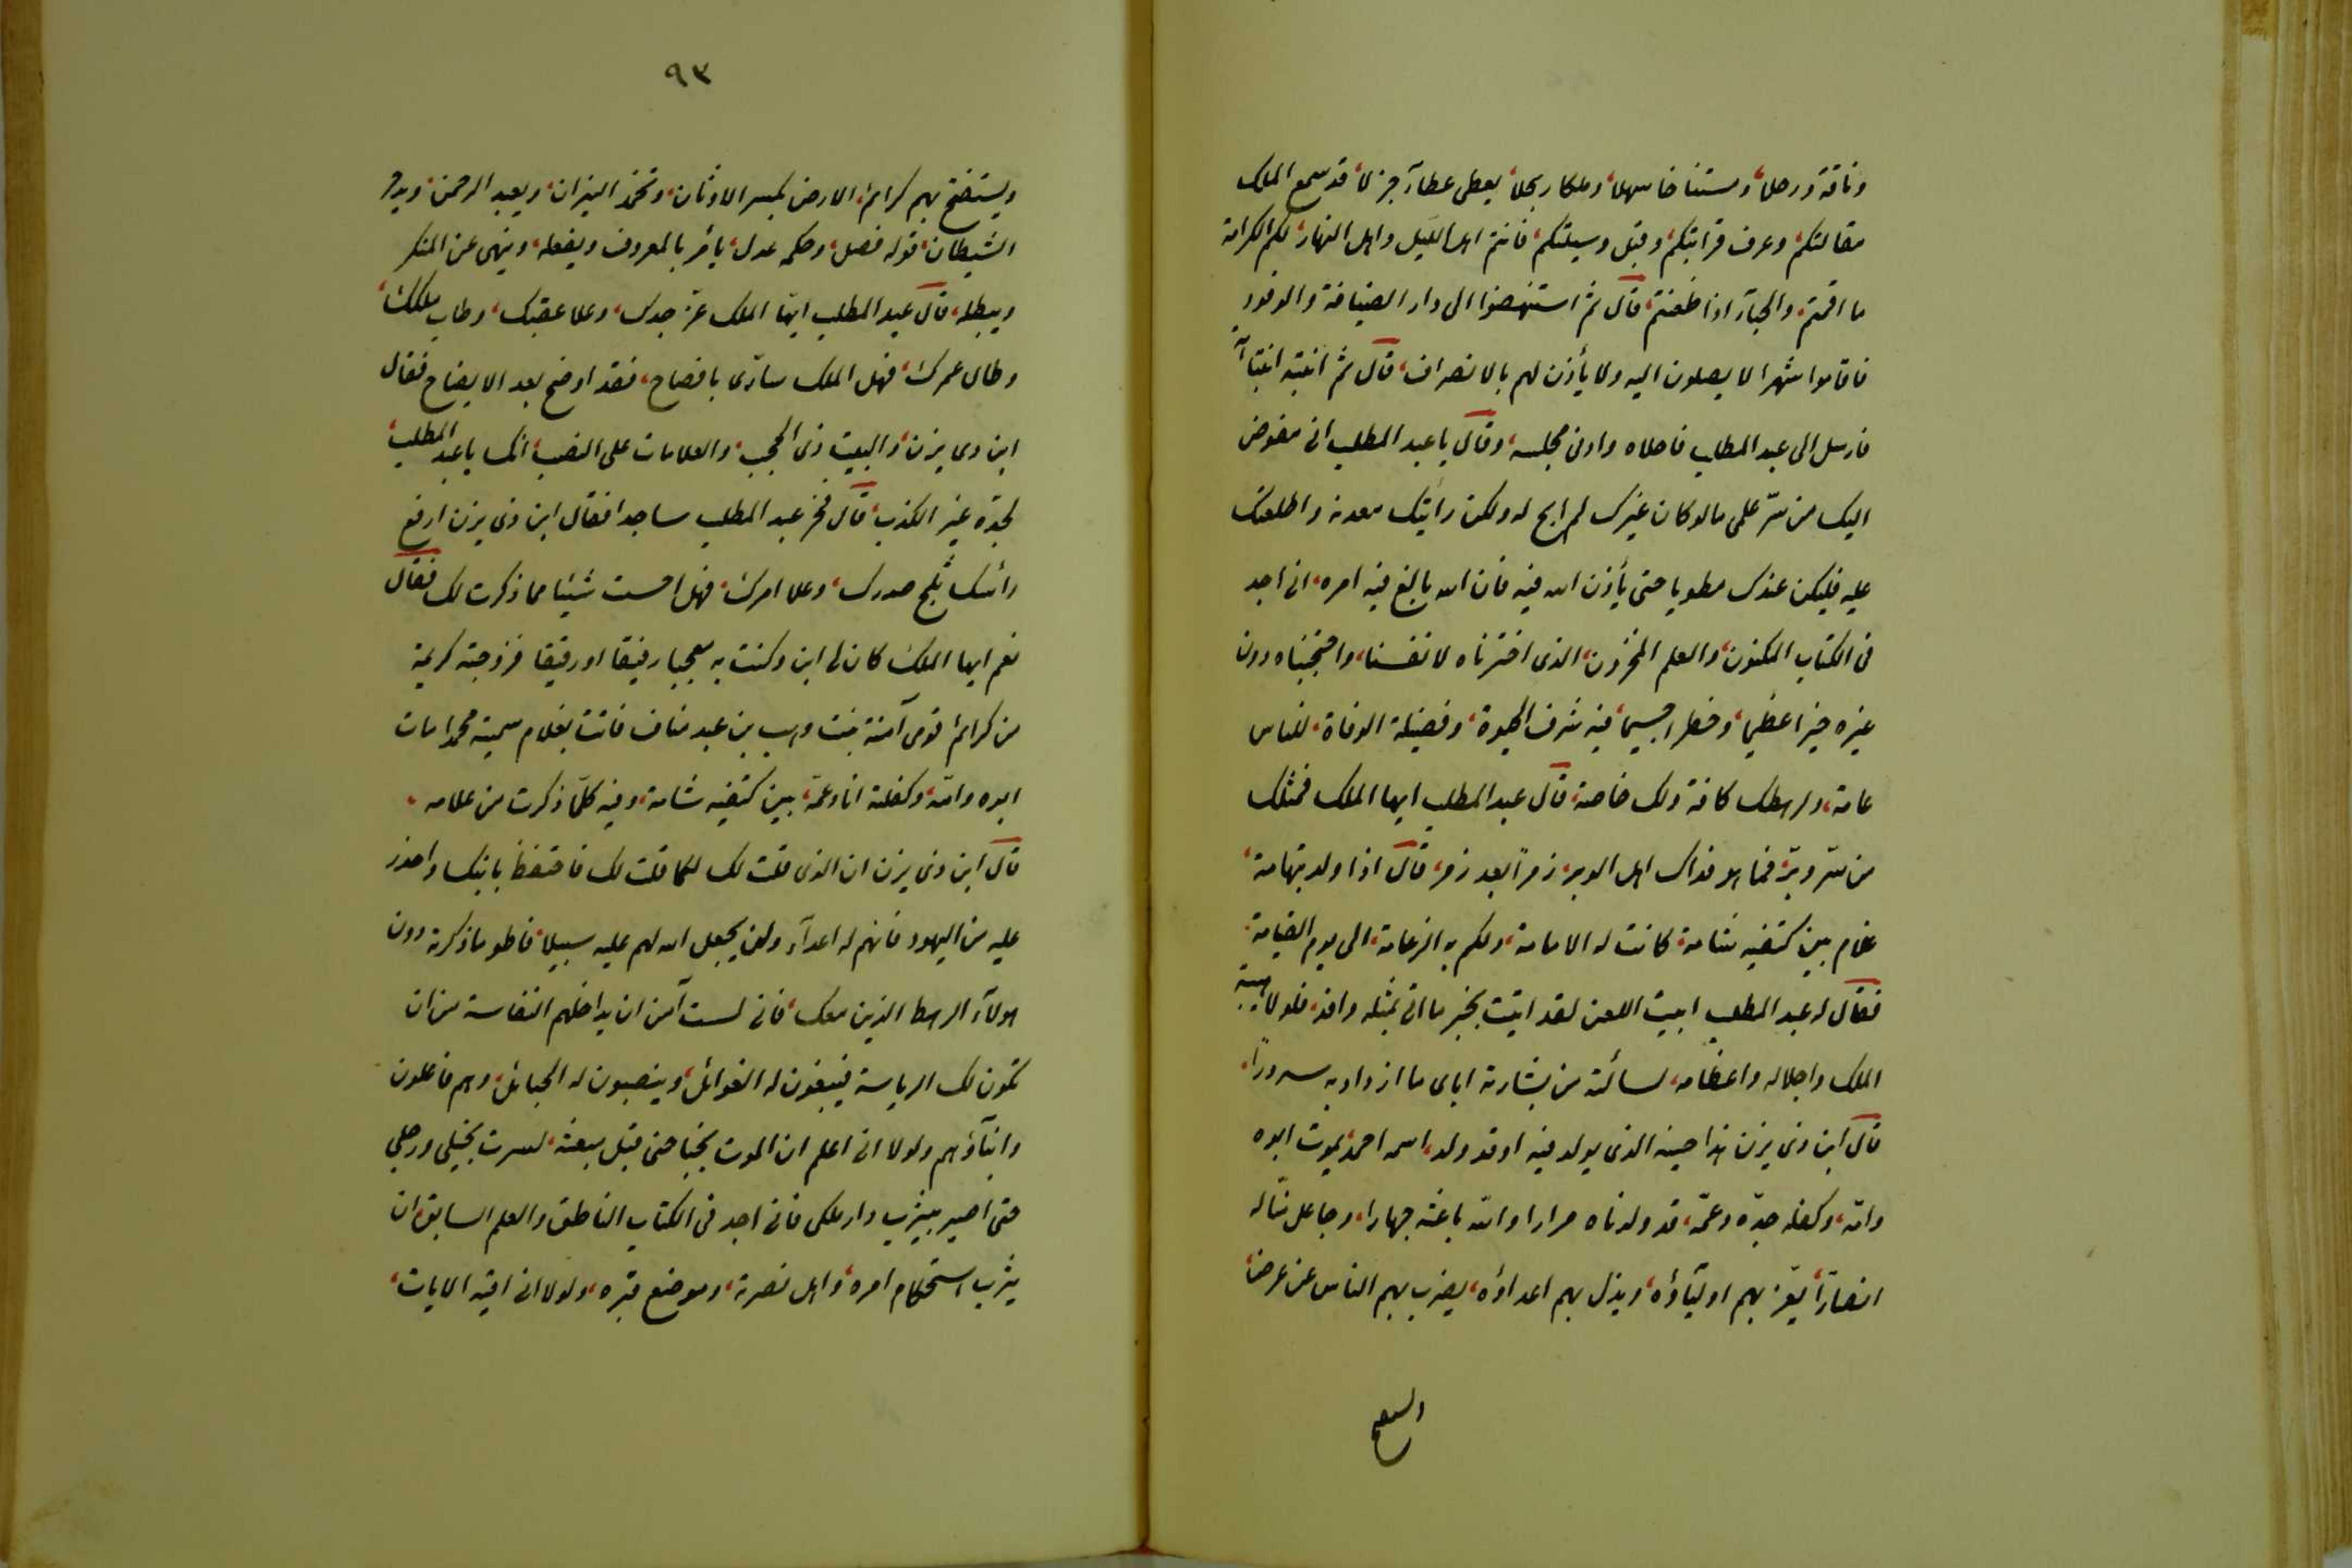 وناقة ورحلا، ومستناخا سهلا، وملكا ربحلا، يعطى عطآء جزلا، قد سمع الملك
مقالتكم، وعرف قرابتكم، وقبل وسيلتكم، فانتم اهل الليل واهل النهار، لكم الكرامة
ما اقمتم، والحبآء اذا ظعنتم، قال ثم استنهضوا الى دار الضيافة والوفود
فاقاموا شهرا لا يصلون اليه ولا يأذن لهم بالانصراف، قال ثم انتبه انتباهة
فارسل الى عبد المطلب فاخلاه وادنى مجلسه، وقال يا عبد المطلب انى مفوض
اليك من سرّ علمى ما لو كان غيرك لم ابح له ولكن رأيتك معدنه واطلعتك
عليه فليكن عندك مطويا حتى يأذن الله فيه فان الله بالغ فيه امره، انى اجد
فى الكتاب المكنون، والعلم المخزون، الذى اخترناه لانفسنا، واحتجبناه دون
غيره خيرا عظيما، وخطرا جسيما، فيه شرف الحيوة، وفضيلة الوفاة، للناس
عامة، ولرهطك كافة ولك خاصة، قال عبد المطلب ايها الملك فمثلك
من سرّ وبرّ، فما هو فداك اهل الوبر، زمرا بعد زمر، قال اذا ولد بتهامة،
غلام بين كتفيه شامة، كانت له الامامة، ولكم به الزعامة، الى يوم القيامة،
فقال له عبد المطلب ابيت اللعن لقد ابت بخير ما اب بمثله وافد، فلولا هيبة
الملك واجلاله واعظامه، لسألته من بشارته اياى ما ازداد به سرورا،
قال ابن ذى يزن هذا حينه الذى يولد فيه او قد ولد، اسمه احمد، يموت ابوه
وامّه، وكفله جدّه وعمّه، قد ولدناه مرارا والله باعثه جهارا، وجاعل منّا له
انصارا، يعزّ بهم اوليآؤه، ويذل بهم اعداؤه، يضرب بهم الناس عن عرض،
ولستفتح
٩٣
ويستفتح بهم كرائم الارض يكسر الاوثان، وتخمد النيران، ويعبد الرحمن، ويدحر
الشيطان، قوله فصل، وحكمه عدل، يأمر بالمعروف ويفعله، وينهى عن المنكر
ويبطله، قال عبد المطلب ايها الملك عزّ جدك، وعلا عقبك، وطاب ملكك،
وطال عمرك، فهل الملك سارّى بافصاح، فقد اوضح بعد الايضاح فقال
ابن ذى يزن، والبيت ذى الحجب، والعلامات على النصب، انك يا عبد المطلب،
لجده غير الكذب، قال فخر عبد المطلب ساجدا فقال ابن ذى يزن ارفع
رأسك ثلج صدرك، وعلا امرك، فهل احست شيئا مما ذكرت لك فقال
نعم ايها الملك كان لى ابن وكنت به معجبا رفيقا او رقيقا فزوجته كريمة
من كرائم قومى آمنة بنت وهب بن عبد مناف فاتت بغلام سميته محمدا مات
ابوه وامّه، وكفلته انا وعمّه، بين كتفيه شامة، وفيه كلّما ذكرت من علامه،
قال ابن ذى يزن ان الذى قلت لك لكما قلت لك فاحتفظ بابنك واحذر
عليه من اليهود فانهم له اعدآء ولن يجعل الله لهم عليه سبيلا، فاطو ما ذكرته دون
هولآء الرهط الذين معك، فانى لست آمن ان يداخلهم النفاسة من ان
تكون لك الرياسة فيبغون له الغوائل، وينصبون له الحبائل، وهم فاعلون
وابنآؤهم ولولا انى اعلم ان الموت يجتاحنى قبل مبعثه، لسرت بخيلى ورجلى
حتى اصير بيثرب دار ملكى فانى اجد فى الكتاب الناطق والعلم السابق ان
يثرب استحكام امره، واهل نصرته، وموضع قبره، ولولا انى اقيه الايات،